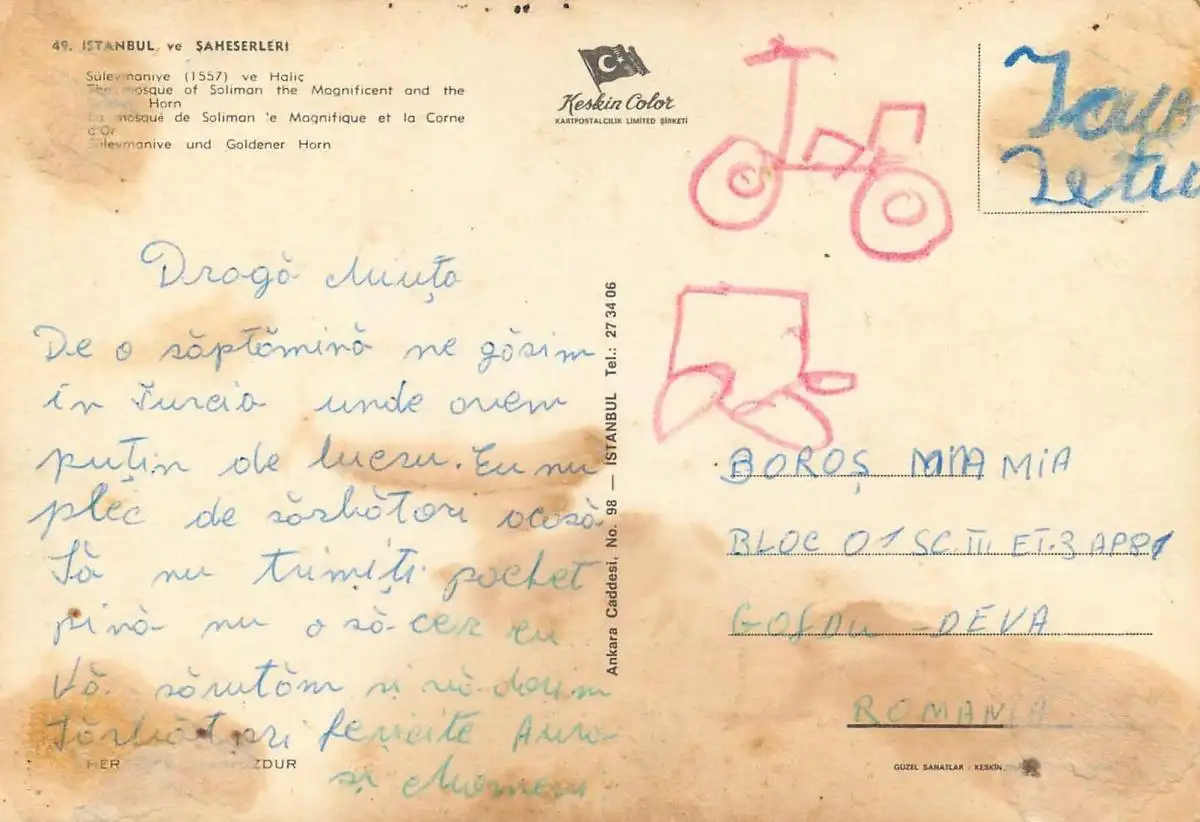 49. İSTANBUL ve ŞAHESERLERİ
Süleymaniye (1557) ve Haliç
The mosque of Soliman the Magnificent and the
Horn
La mosqué de Soliman le Magnifique et la Corne
d'Or
Süleymaniye und Goldener Horn
Keskin Color
KARTPOSTALCILIK LIMITED ŞİRKETİ
Dragă Miuța
De o săptămînă ne găsim
în Turcia unde avem
puțin de lucru. Eu nu
plec de sărbători acasă
Să nu trimiți pachet
pînă nu o să cer eu
Vă sărutăm și vă dorim
Sărbători fericite Aura
și
HER
Ankara Caddesi, No. 98 — İSTANBUL Tel.: 27 34 06
BOROȘ MIA MIA
BLOC 01 SC.III ET.3 AP81
GOJDU - DEVA
ROMANIA
GÜZEL SANATLAR - KESKİN